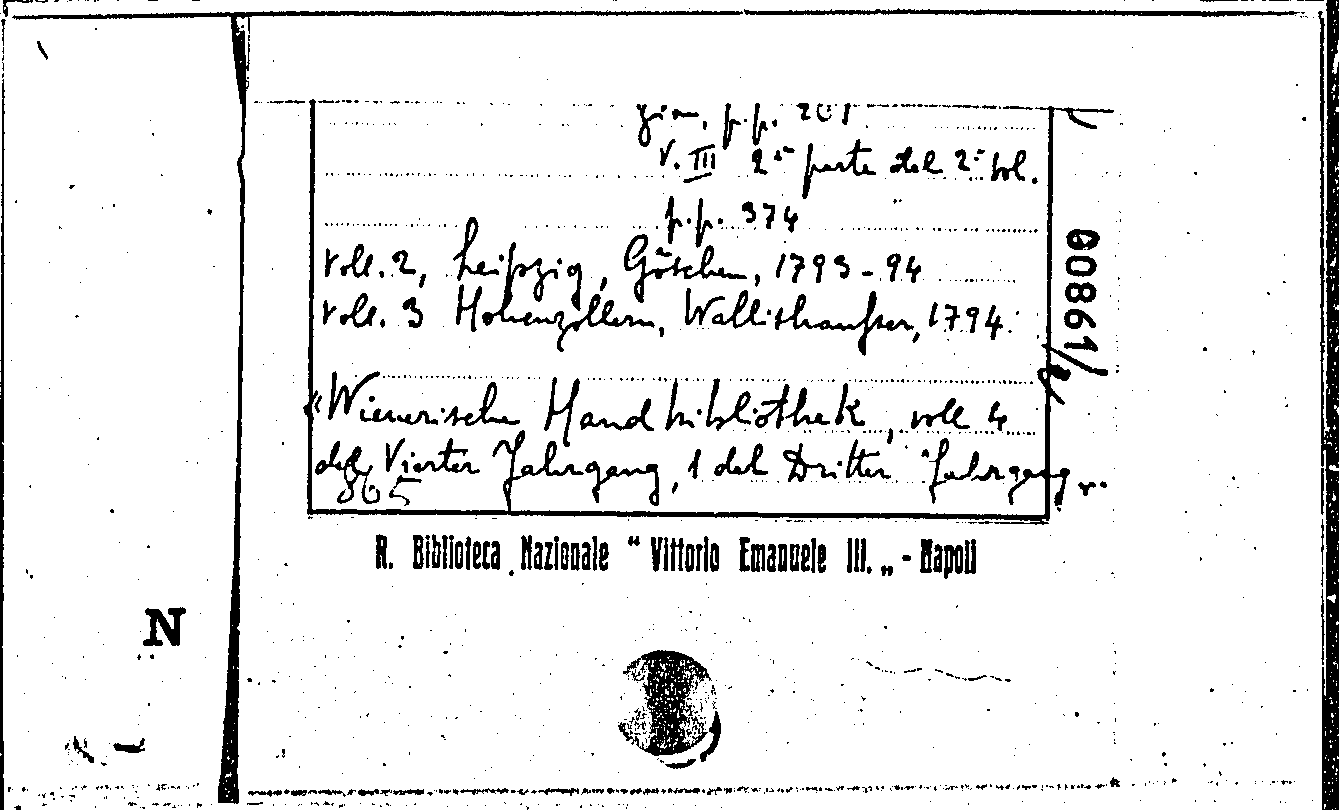 p.p. 201
V. III 2ª parte del 2º vol.
p.p. 374
voll. 2, Leipzig, Göschen, 1793-94
voll. 3 Hohenzollern, Wallishausser, 1794.
«Wienerische Handbibliothek, voll 4
del Vierter Jahrgang, 1 del Dritter Jahrgang
865
R. Biblioteca Nazionale “ Vittorio Emanuele III. „ - Napoli
00861/
N